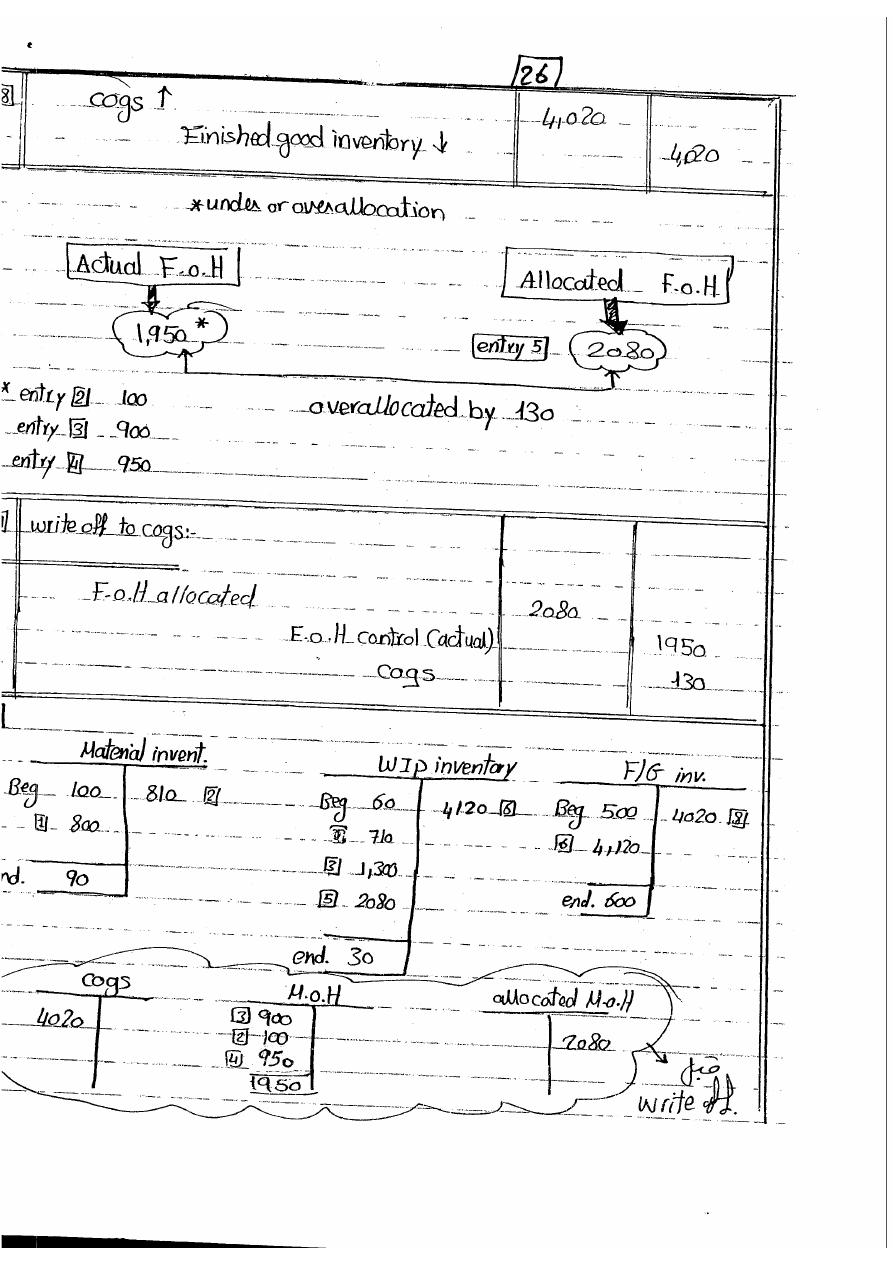 26
8 cogs ↑ 4,020
Finished good inventory ↓ 4,020
*under or overallocation
Actual F.o.H Allocated F.o.H
1,950 * entry 5 2080
* entry 2 100 overallocated by 130
entry 3 900
entry 4 950
write off to cogs:-
F.o.H allocated 2080
F.o.H control (actual) 1950
cogs 130
Material invent. WIP inventory F/G inv.
Beg 100 810 2 Beg 60 4120 6 Beg 500 4020 8
1 800 710 6 4,120
3 1,300
nd. 90 5 2080 end. 600
end. 30
cogs M.o.H allocated M.o.H
4020 3 900 2080
2 100
4 950
1950
write off.